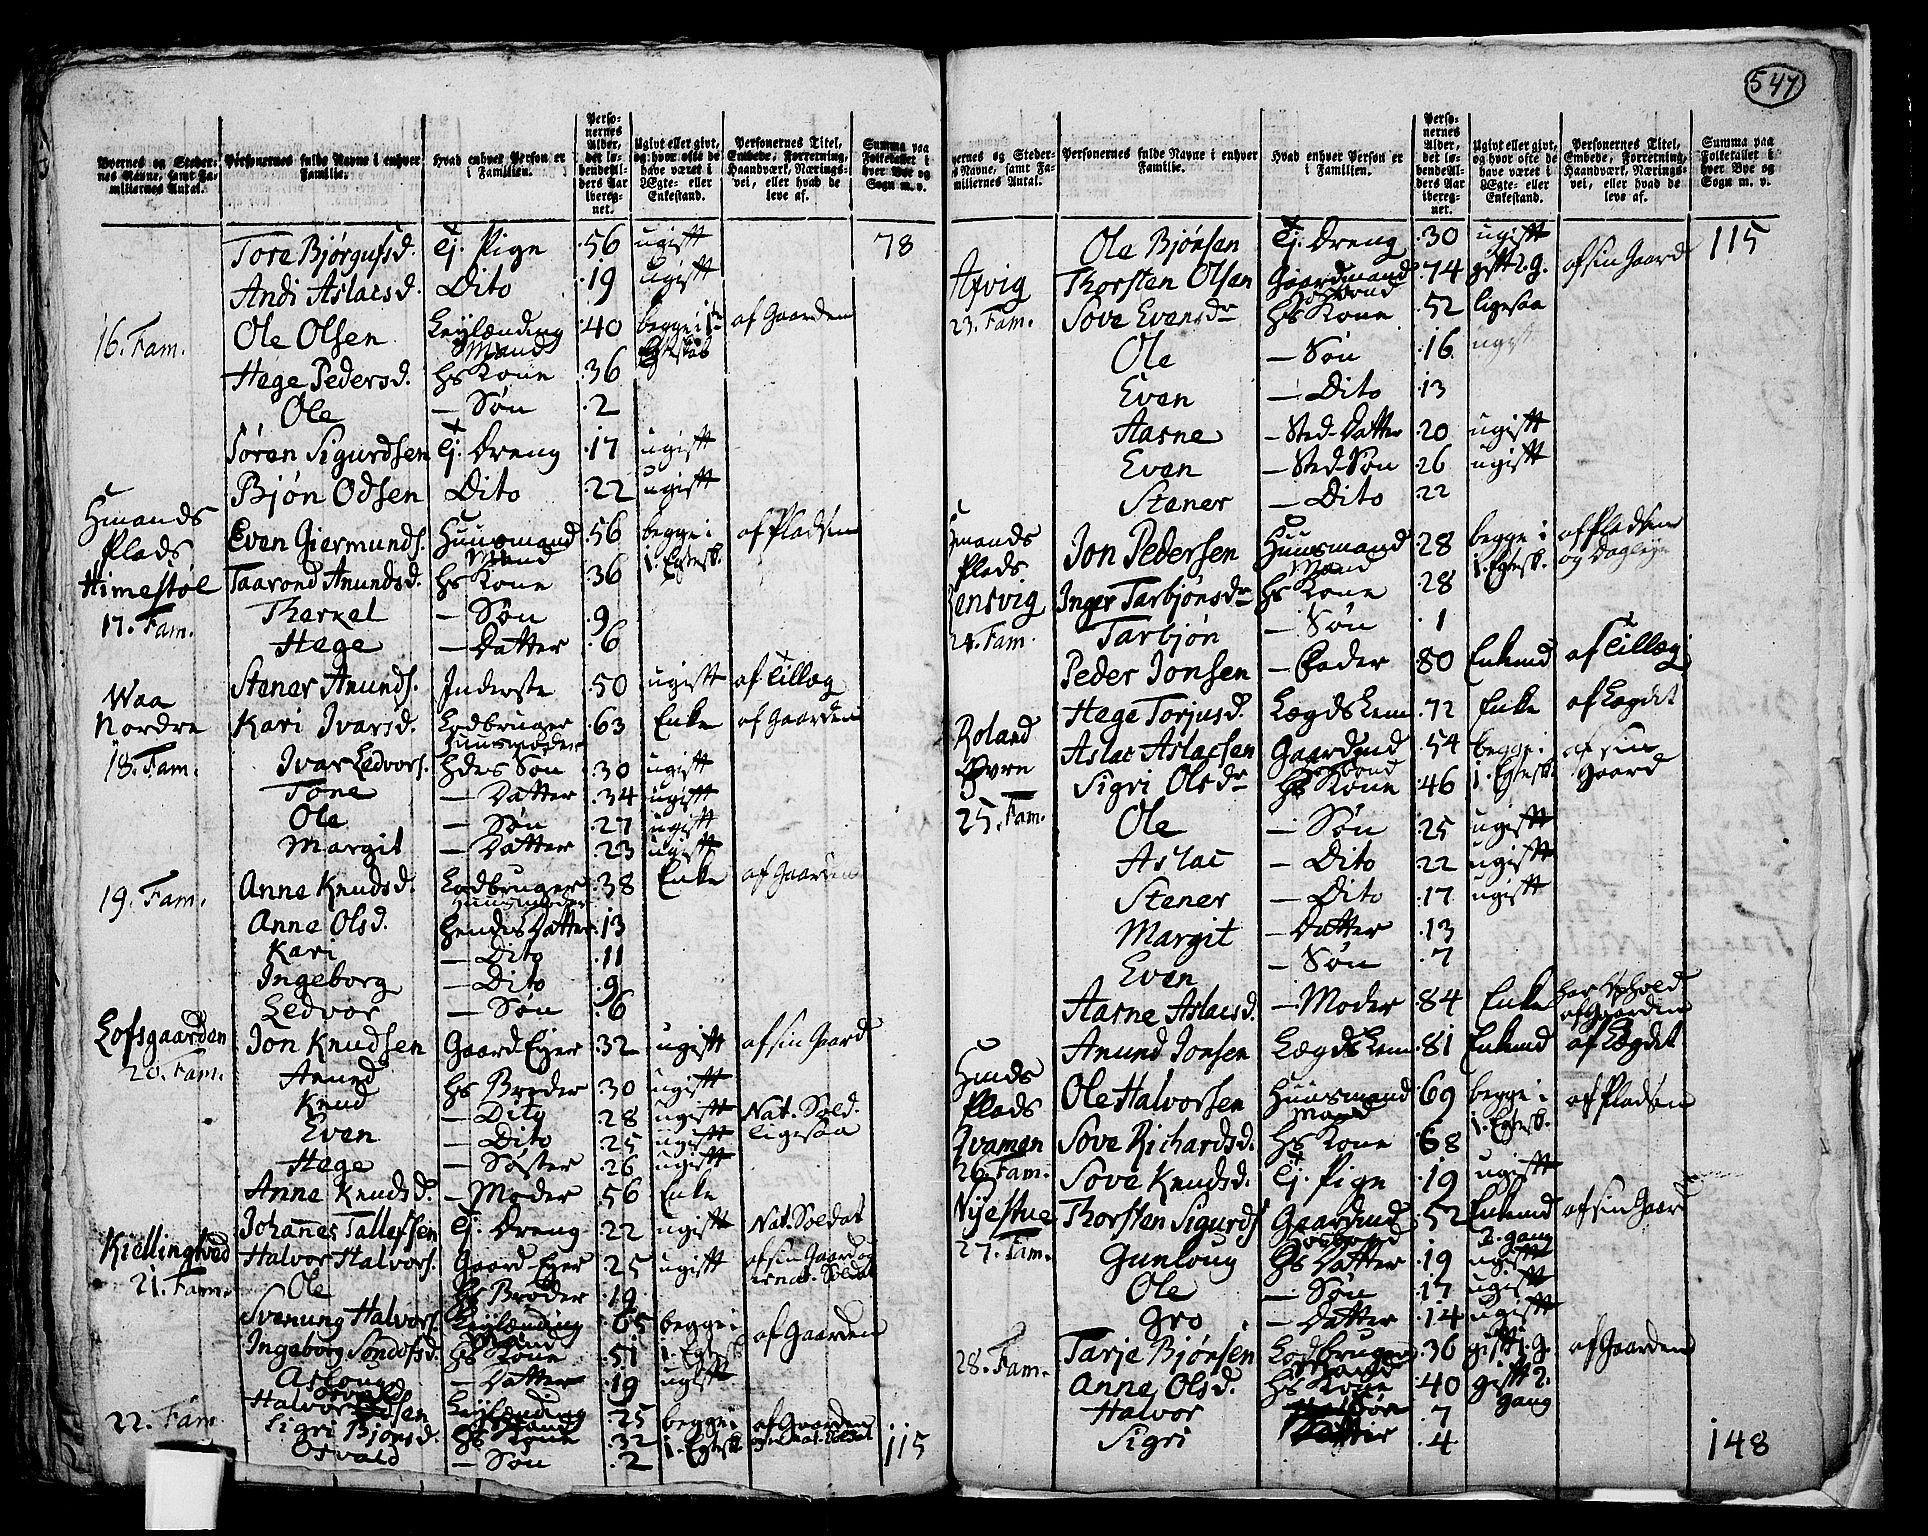 547
Byernes og Steder-nes Navne, samt Fa-miliernes Antal. | Personernes fulde Navne i enhver Familie. | Hvad enhver Person er i Familien. | Perso-nernes Alder, det lø-bende Al-ders Aar iberegnet. | Ugivt eller givt, og hvor ofte de have været i Ægte- eller Enkestand. | Personernes Titel, Embede, Forretning, Haandværk, Nærings-vei, eller hvad de leve af. | Summa paa Folketallet i hver Bye og Sogn m. v.
Tore Bjørgufsd. | Tj. Pige | 56 | ugift | 78
Andi Aslacsd. | Dito | 19 | ugift
16. Fam. | Ole Olsen | Leylænding Mand | 40 | begge i 1ste Egteskab | af Gaarden
Hege Pedersd. | Hs Kone | 36
Ole | — Søn | 2
Søren Sigurdsen | Tj. Dreng | 17 | ugift
Bjøn Odsen | Dito | 22 | ugift
Hmands Plads Himestøl | Even Giermunds. | Huusmand Mand | 56 | begge i 1. Egtesk. | af Pladsen
17. Fam. | Taarond Anundsd. | Hs Kone | 36
Therkel | — Søn | 9
Hege | — Datter | 6
Stener Anunds. | Inderste | 50 | ugift | af Tillæg
Waa Nordre | Kari Ivarsd. | Lodbruger Huusmoder | 63 | Enke | af Gaarden
18. Fam. | Ivar Ledvors. | Hdes Søn | 30 | ugift
Tone | — Datter | 34 | ugift
Ole | — Søn | 27 | ugift
Margit | — Datter | 23 | ugift
19. Fam. | Anne Knudsd. | Lodbruger Huusmoder | 38 | Enke | af Gaarden
Anne Olsd. | Hendes Datter | 13
Kari | — Dito | 11
Ingeborg | — Dito | 9
Ledvor | — Søn | 6
Lofsgaarden | Jon Knudsen | Gaard Eyer | 32 | ugift | af sin Gaard
20. Fam. | Anund | Hs Broder | 30 | ugift
Knud | — Dito | 28 | ugift | Nat. Sold.
Even | — Dito | 25 | ugift | ligesaa
Hege | — Søster | 26 | ugift
Anne Knudsd. | — Moder | 56 | Enke
Johannes Tallefsen | Tj. Dreng | 22 | ugift | Nat. Soldat
Kiellingtved | Halvor Halvors. | Gaard Eyer | 25 | ugift | af sin Gaard og er nat. Soldat
21. Fam. | Ole | Hs Broder | 19
Svenung Halvors. | Leylænding Mand | 65 | begge i 1. Egtesk. | af Gaarden
Ingeborg Sondofsd. | Hs Kone | 51
Asloug | — Datter | 19 | ugift
22. Fam. | Halvor Osvaldsen | Leylænding Mand | 25 | begge i 1. Egtesk. | af Gaarden
Sigri Bjønsd. | Hs Kone | 32
Osvald | — Søn | 2 | 115
Byernes og Steder-nes Navne, samt Fa-miliernes Antal. | Personernes fulde Navne i enhver Familie. | Hvad enhver Person er i Familien. | Perso-nernes Alder, det lø-bende Al-ders Aar iberegnet. | Ugivt eller givt, og hvor ofte de have været i Ægte- eller Enkestand. | Personernes Titel, Embede, Forretning, Haandværk, Nærings-vei, eller hvad de leve af. | Summa paa Folketallet i hver Bye og Sogn m. v.
Ole Bjønsen | Tj. Dreng | 30 | ugift | 115
Afvig | Thorsten Olsen | Gaardmand Hosbond | 74 | gift 2. g. | af sin Gaard
23. Fam. | Sove Evensdr | Hs Kone | 52 | ligesaa
Ole | — Søn | 16 | ugift
Even | — Dito | 13
Aasne | — Sted-Datter | 20 | ugift
Even | — Sted-Søn | 26 | ugift
Stener | — Dito | 22
Hmands Plads | Jon Pedersen | Huusmand Mand | 28 | begge i 1. Egtesk. | af Pladsen og Dagleye
24. Fam. | Inger Tarbjønsdr | Hs Kone | 28
Tarbjøn | — Søn | 1
Peder Jonsen | — Fader | 80 | Enkemd | af Tillæg
Hege Torjusd. | Lægdslem | 72 | Enke | af Lægdet
Roland Øvre | Aslac Aslacsen | Gaardmd Hosbond | 54 | begge i 1. Egtesk. | af sin Gaard
Sigri Olsdr | Hs Kone | 46
25. Fam. | Ole | — Søn | 25 | ugift
Aslac | — Dito | 22 | ugift
Stener | — Dito | 17 | ugift
Margit | — Datter | 13
Even | — Søn | 7
Aasne Aslacsd. | — Moder | 84 | Enke | har Ophold af Gaarden
Anund Jonsen | Lægdslem | 81 | Enkemd | af Lægdet
Hmds Plads | Ole Halvorsen | Huusmand Mand | 69 | begge i 1. Egtesk. | af Pladsen
Qvamen | Sove Richardsd. | Hs Kone | 68
26. Fam. | Sove Knudsd. | Tj. Pige | 19 | ugift
Nijestue | Thorsten Sigurds. | Gaardmd Hosbond | 52 | Enkemd 2. gang | af sin Gaard
27. Fam. | Gunloug | Hs Datter | 19 | ugift
Ole | — Søn | 17 | ugift
Gro | — Datter | 14 | ugift
28. Fam. | Tarje Bjønsen | Lodbruger Mand | 36 | gift 1. g. | af Gaarden
Anne Olsd. | Hs Kone | 40 | gift 2. gang
Halvor | Søn | 7
Sigri | Datter | 4 | 148